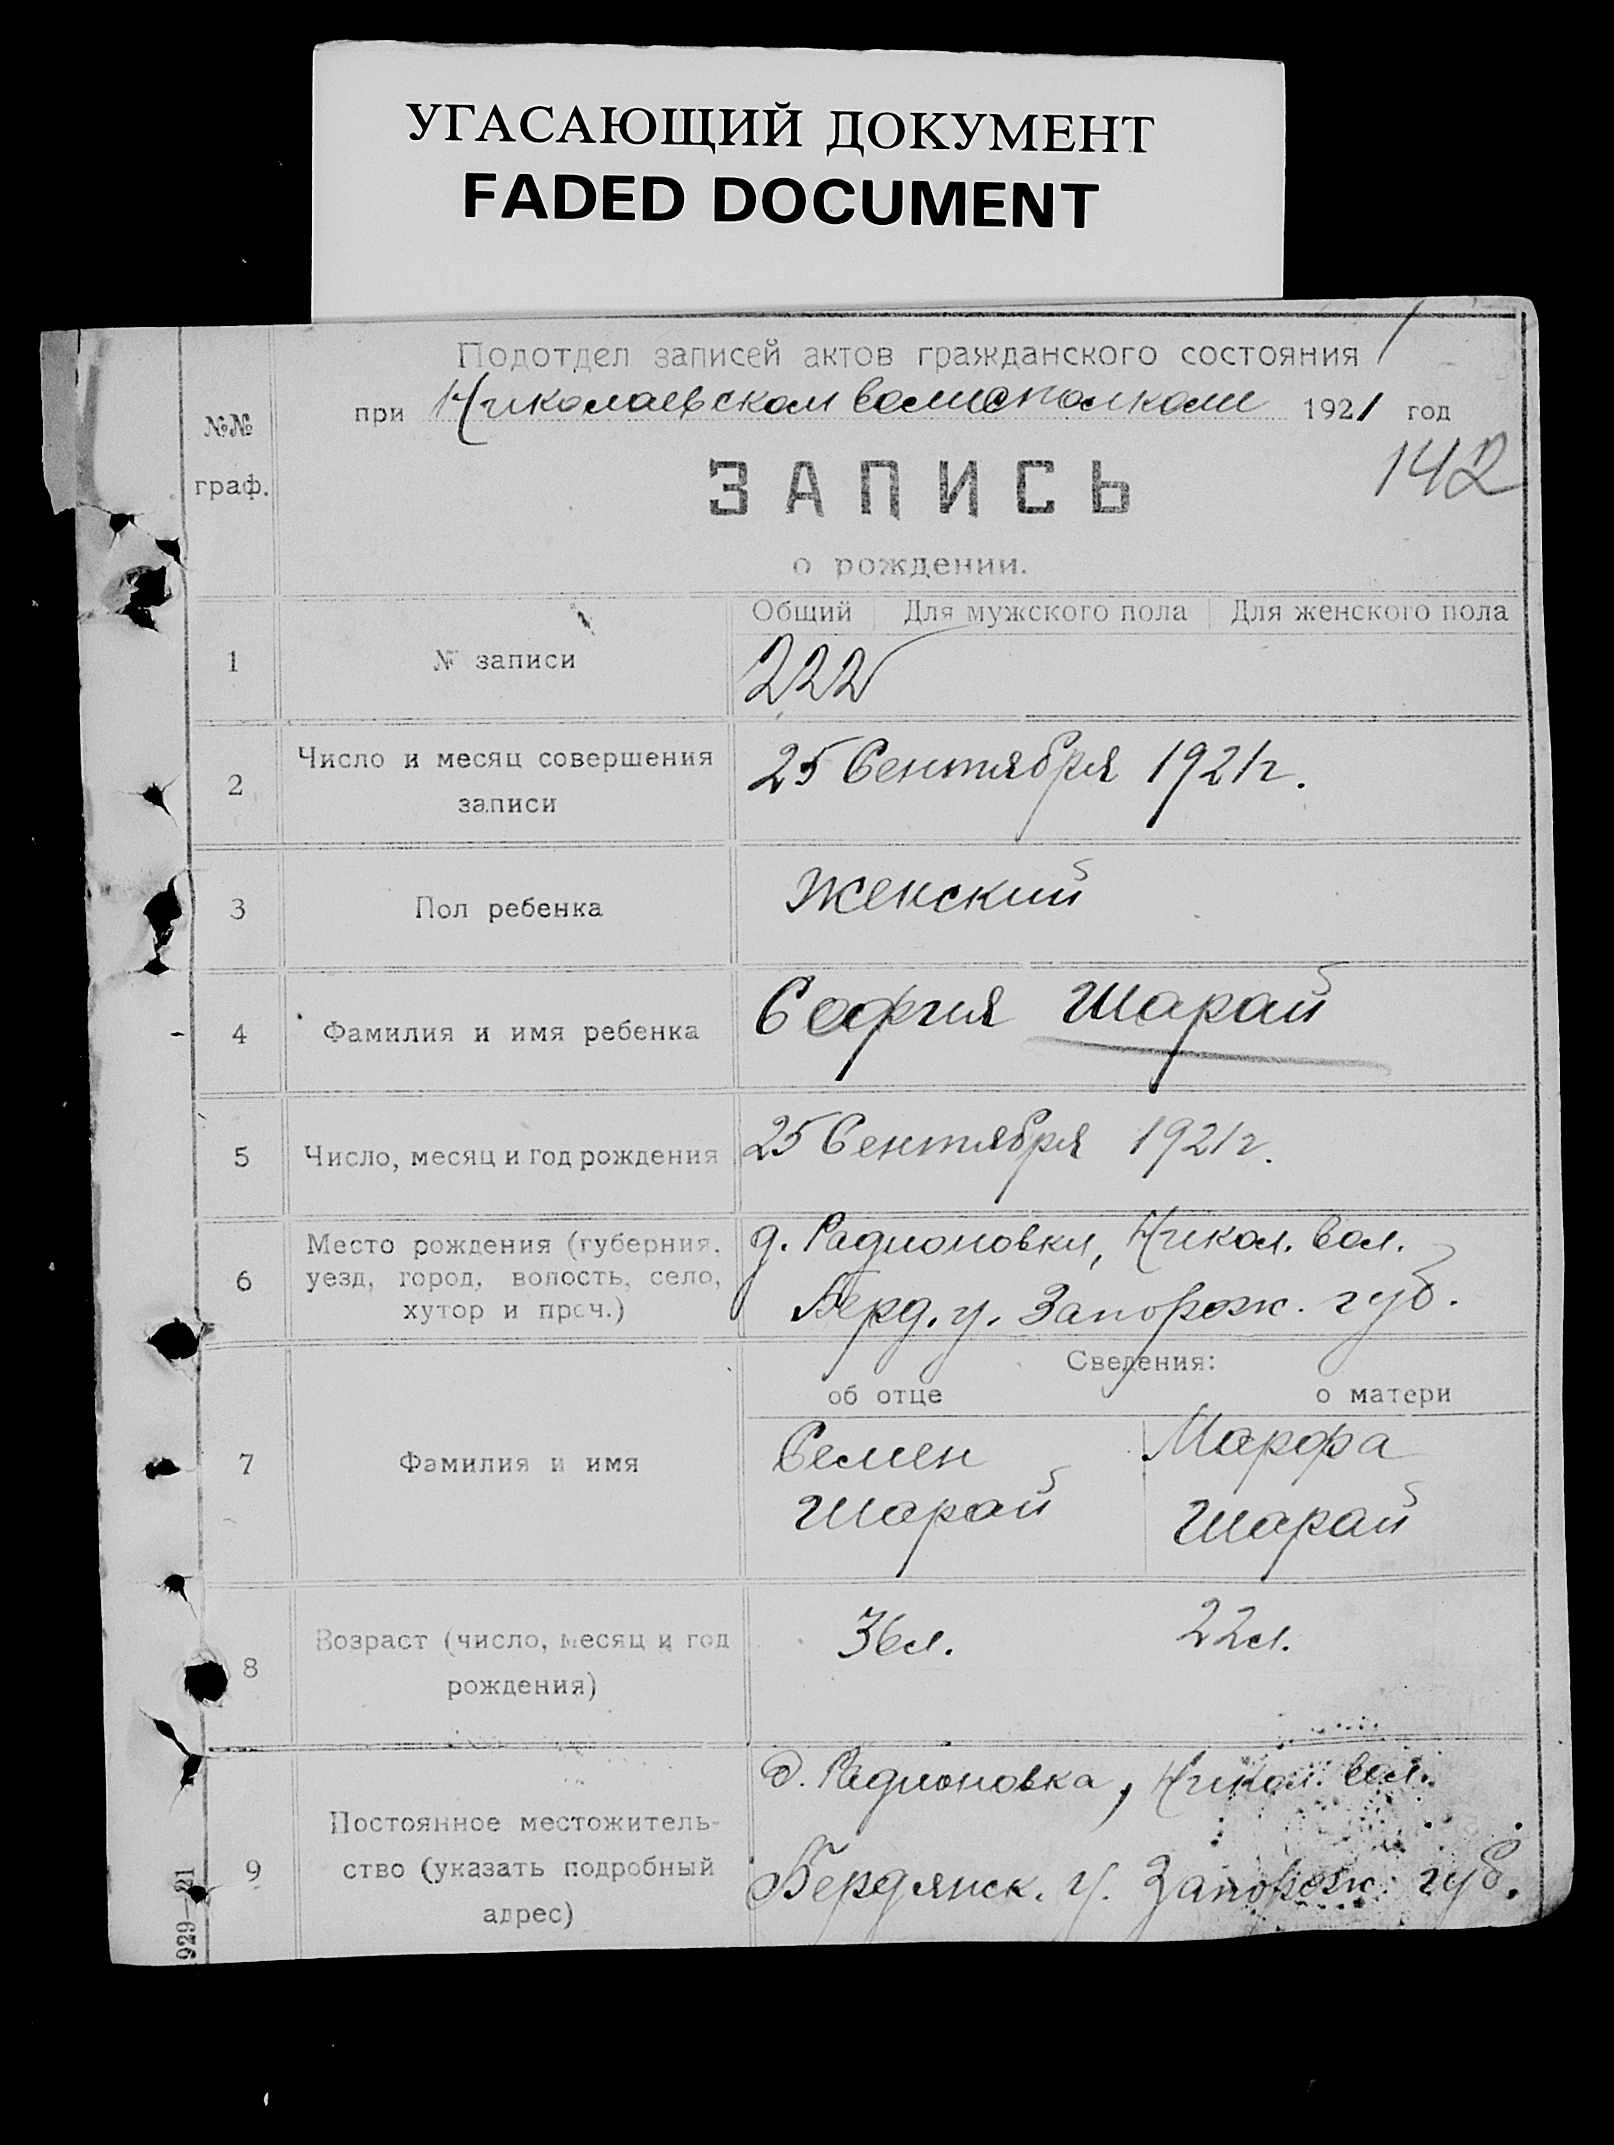 УГАСАЮЩИЙ ДОКУМЕНТ
FADED DOCUMENT
Подотдел записей актов гражданского состояния
при Николаевском волисполкоме 1921 год
№№
граф.
142
ЗАПИСЬ
о рождении.
Общий Для мужского пола Для женского пола
1 № записи 222
2 Число и месяц совершения
записи
25 Сентября 1921 г.
3 Пол ребенка Женский
4 Фамилия и имя ребенка София Шарай
5 Число, месяц и год рождения 25 Сентября 1921 г.
6 Место рождения (губерния,
уезд, город, волость, село,
хутор и проч.)
д. Радионовки, Никол. вол.
Берд. у. Запорож. губ.
Сведения:
об отце о матери
7 Фамилия и имя
Семен
Шарай
Марфа
Шарай
8 Возраст (число, месяц и год
рождения)
36 л. 22 л.
9 Постоянное местожитель-
ство (указать подробный
адрес)
д. Радионовка, Никол. вол.
Бердянск. у. Запорож. губ.
929—21